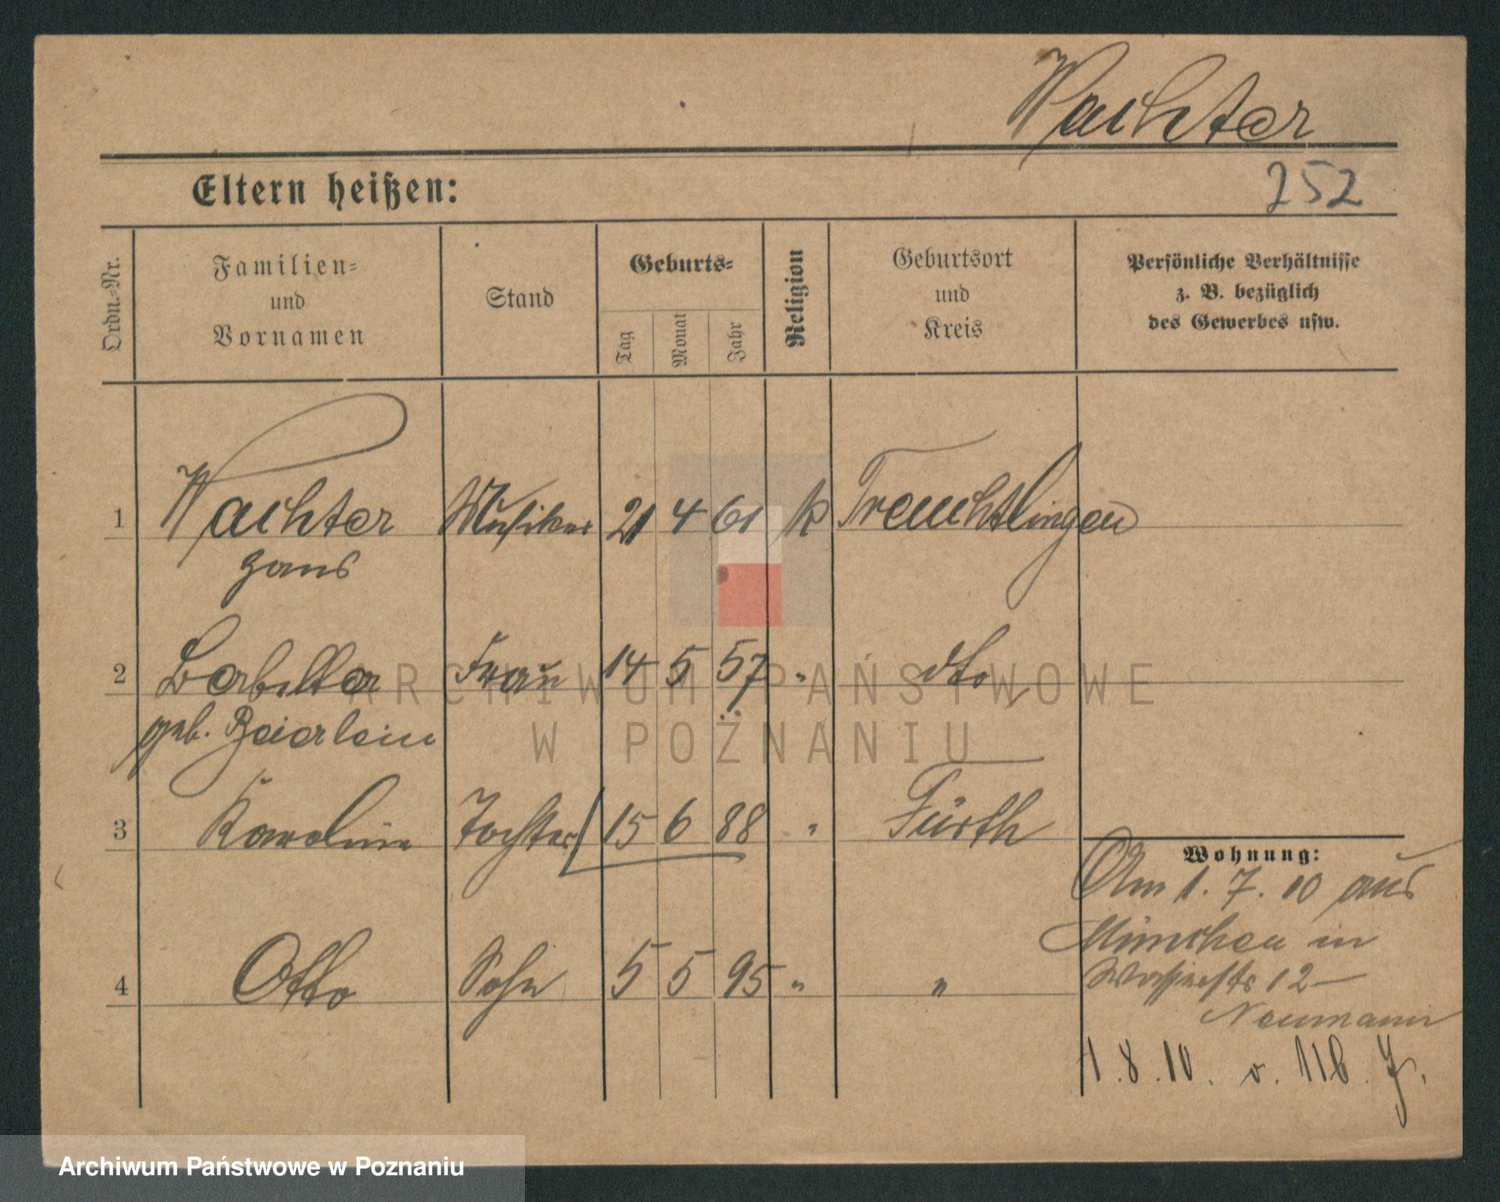 Wachter
252
Eltern heißen:
Ordn.-Nr.
Familien-
und
Vornamen
Stand
Geburts-
Tag
Monat
Jahr
Religion
Geburtsort
und
Kreis
Persönliche Verhältnisse
z. B. bezüglich
des Gewerbes usw.
1 Wachter Musiker 21 4 61 k Treuchtlingen
Hans
2 Babetta Frau 14 5 57 " dto
geb. Beierlein
3 Karoline Tochter 15 6 88 " Fürth
4 Otto Sohn 5 5 95 " "
Wohnung:
Am 1. 7. 10 aus
München in
12
Neumann
1. 8. 10. v. 116. J.
ARCHIWUM PAŃSTWOWE
W POZNANIU
Archiwum Państwowe w Poznaniu